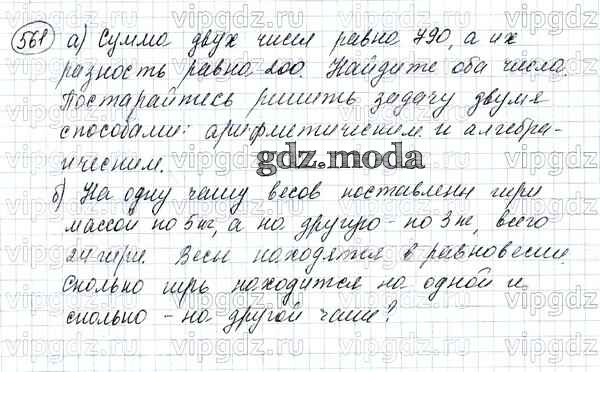 561 а) Сумма двух чисел равна 790, а их
разность равна 200. Найдите оба числа.
Постарайтесь решить задачу двумя
способами: арифметическим и алгебра-
ическим.
gdz.moda
б) На одну чашу весов поставлены гири
массой по 5 кг, а на другую - по 3 кг, всего
24 гири. Весы находятся в равновесии.
Сколько гирь находится на одной и
сколько - на другой чаше?
vipgdz.com